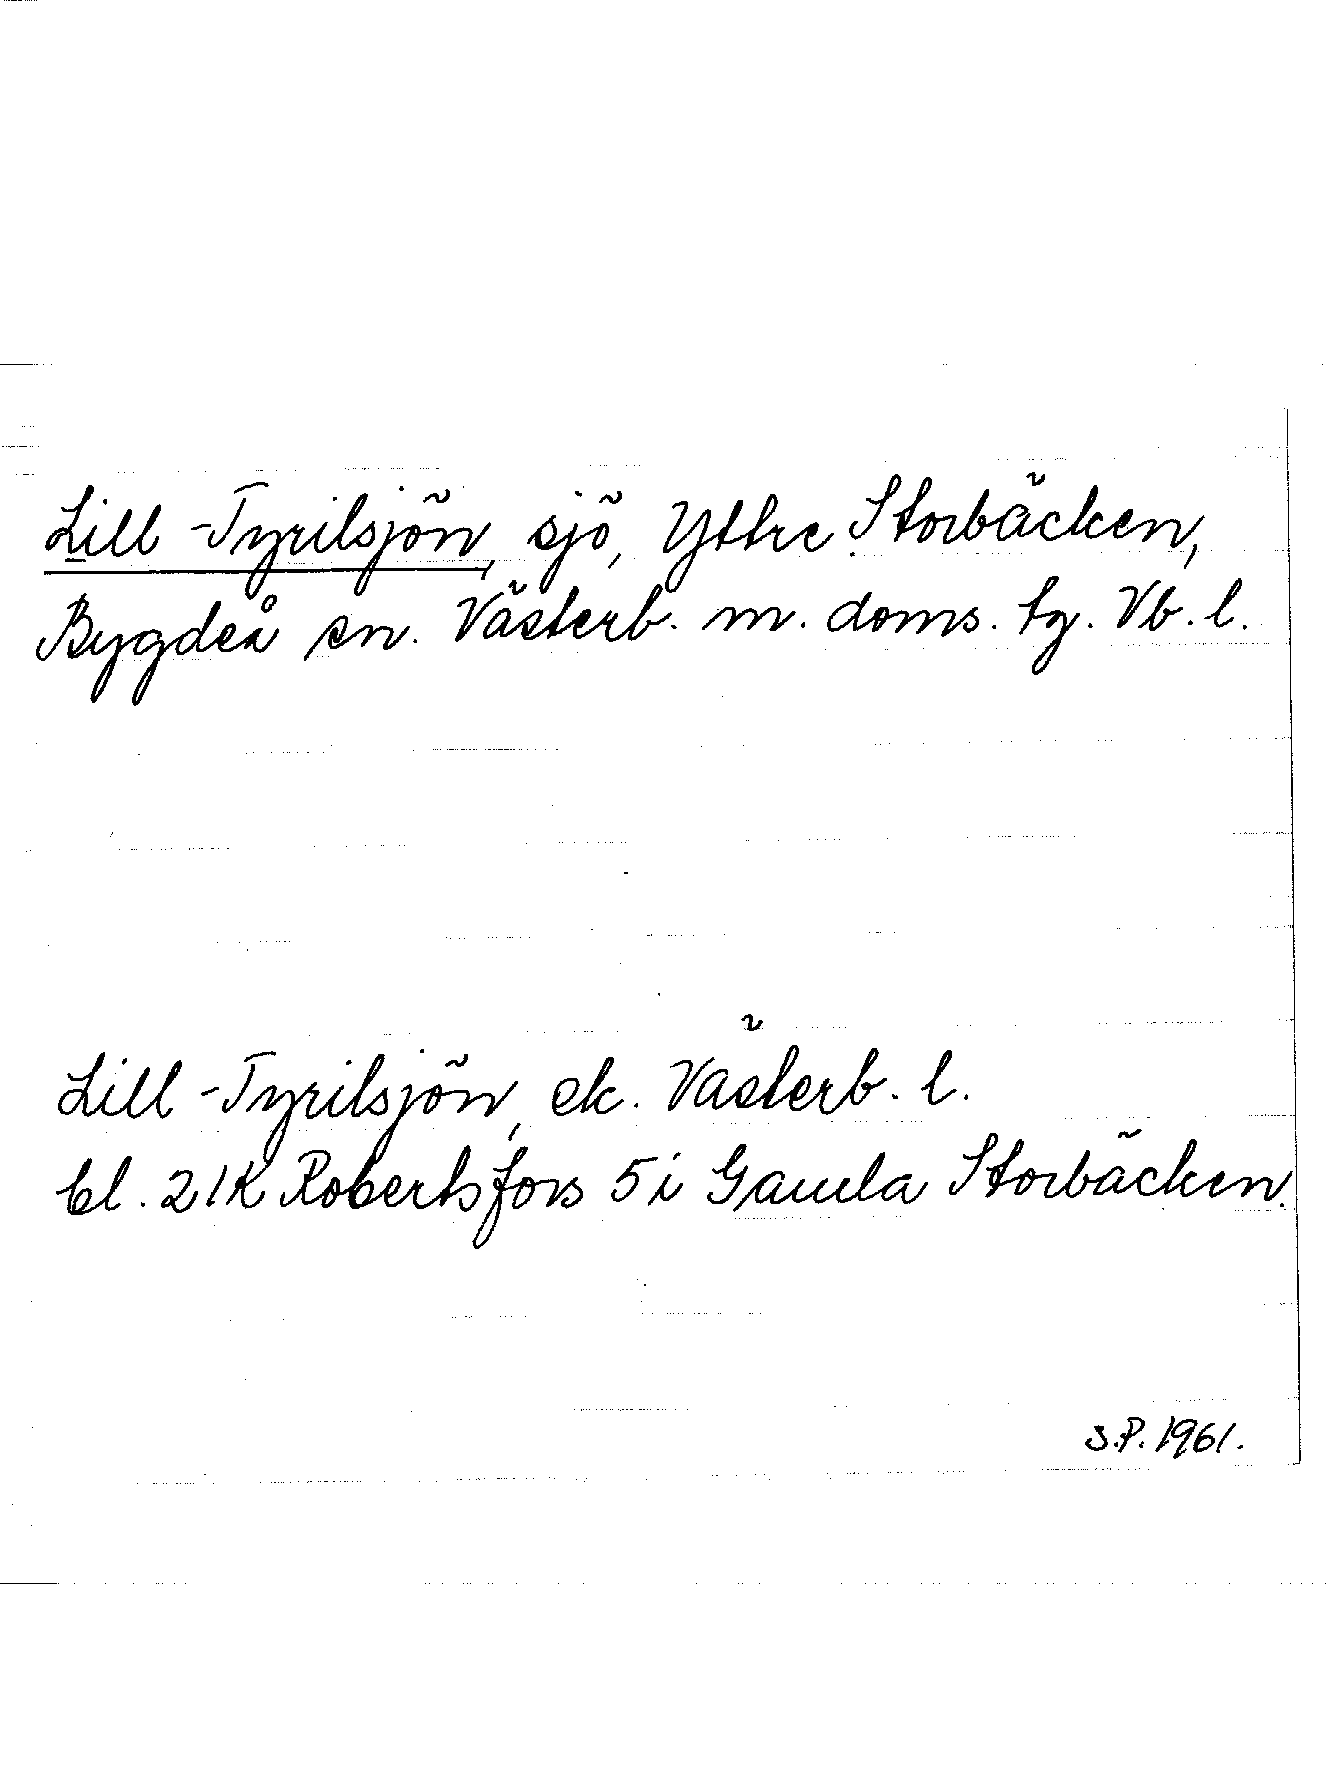 Lill-Tyrilsjön, sjö, Yttre Storbäcken,
Bygdeå sn. Västerb. m. doms. tg. Vb. l.
Lill-Tyrilsjön, ek. Västerb. l.
bl. 21K Robertsfors 5 i Gamla Storbäcken.
S.P. 1961.